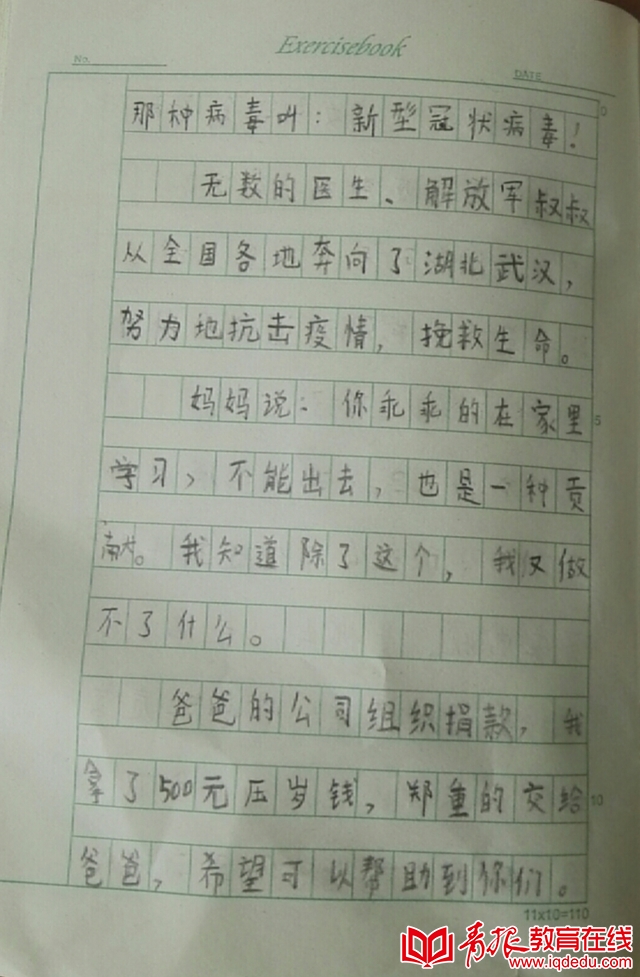 Exercisebook
No.
DATE
那种病毒叫：新型冠状病毒！
无数的医生、解放军叔叔
从全国各地奔向了湖北武汉，
努力地抗击疫情，挽救生命。
妈妈说：你乖乖的在家里
学习，不能出去，也是一种贡
献。我知道除了这个，我又做
不了什么。
爸爸的公司组织捐款，我
拿了500元压岁钱，郑重的交给
爸爸，希望可以帮助到你们。
0
5
10
11x10=110
青报教育在线
www.iqdedu.com